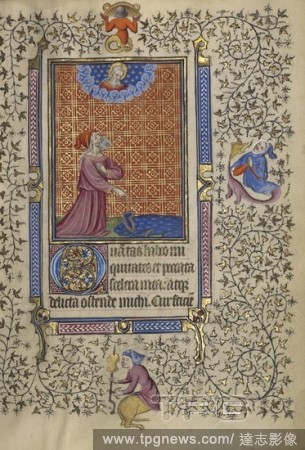 Quantas habeo ini
quitates et peccata
scelera mea: atque
delicta ostende michi. Cur facie
www.tpgnews.com/ 達志影像